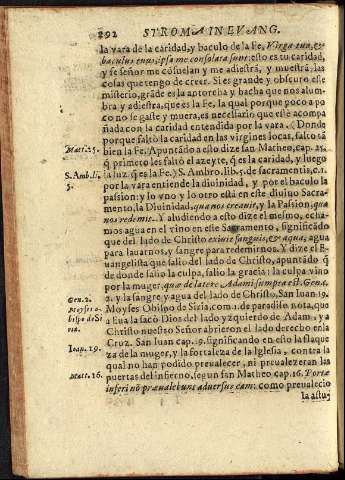 292 STROMA IN EVANG.
la vara de la caridad, y baculo de la Fe, Virga tua, &
baculus tuus, ipsa me consolata sunt: esto es tu caridad,
y fe señor me cōsuelan y me adiestrā, y muestrā, las
cosas que tengo de creer. Si es grande y obscuro este
misterio, grāde es la antorcha y hacha que nos alum-
bra y adiestra, que es la Fe, la qual porque poco a po
co no se gaste y muera, es necessario que estè acompa
ñada con la caridad entendida por la vara. (Donde
porque faltò la caridad en las virgines locas, faltò tā
Matt. 25.
bien la Fe. Apuntado a esto dize san Matheo, cap. 25.
q̄ primero les faltò el azeyte, q̄ es la caridad, y luego
S. Amb. li.
5.
la luz, q̄ es la Fe.) S. Ambro. lib. 5. de sacramentis, c. 1.
por la vara entiende la diuinidad, y por el baculo la
passion: y lo vno y lo otro està en este diuino Sacra-
mento, la Diuinidad, qua nos creauit, y la Passion, qua
nos redemis. Y aludiendo a esto dize el mesmo, echa-
mos agua en el vino en este Sacramento, significādo
que del lado de Christo exiuit sanguis, & aqua, agua
para lauarnos, y sangre para redemirnos. Y dize el E-
uangelista que salio del lado de Christo, apuntādo q̄
de donde salio la culpa, salio la gracia: la culpa vino
por la muger, quæ de latere Adami sumpta est. Gene.
Gen. 2.
2. y la sangre y agua del lado de Christo, San Iuan 19.
Moyses o-
bispo de Si
ria.
Moyses Obispo de Siria, com. 1. de paradiso, nota, que
a Eua la sacò Dios del lado yzquierdo de Adam, y a
Christo nuestro Señor abrieron el lado derecho en la
Ioan. 19.
Cruz. San Iuan cap. 9. significando en esto la flaque
za de la muger, y la fortaleza de la Iglesia, contra la
qual no han podido preualecer, ni preualezeran las
Matt. 16.
puertas del infierno, segun san Matheo cap. 16. Portæ
inferi nō præualebunt aduersus eam: como preualecio
la astu-